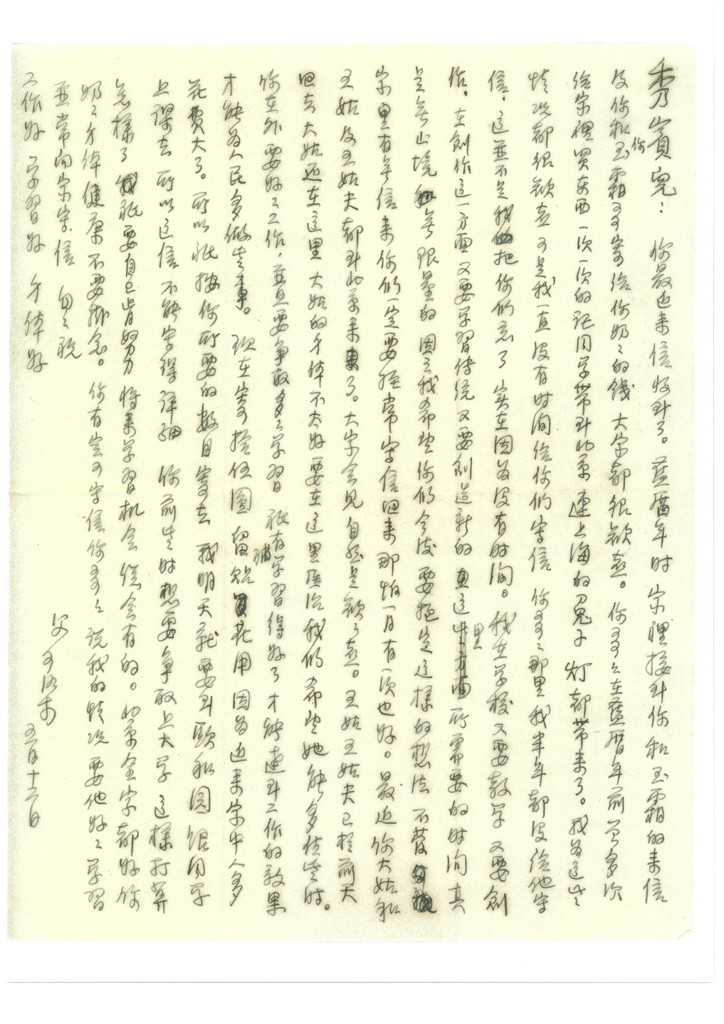 秀賓兒：你最近来信收到了。旧曆年时家裡接到你和玉霜的来信
及你和玉霜哥哥寄给你奶奶的錢大家都很歡喜。你哥哥在旧曆年前曾多次
给家裡買东西一次一次的託同学带到北京連上海的兔子灯都带来了。我为这些
情况都很歡喜可是我一直没有时间给你们写信你哥哥那里我半年都没给他写
信，这並不是我把你们忘了实在因为没有时间。我在学校又要教学又要創
作，在創作这一方面又要学習传统又要創造新的这里所需要的时间真
是無止境無限量的因之我希望你们今後要抱定这样的想法不管
家里有無信来你们一定要經常写信回来那怕一月有一次也好。最近你大姑和
五姑及五姑夫都到北京来了。大家会見自然是歡喜。五姑五姑夫已於前天
回去大姑还在这里大姑的身体不大好要在这里医治我们希望她能多住些时。
你在外要好好工作，並且要争取多多学習祇有学習得好了才能達到工作的效果
才能为人民多做些事。现在寄拾伍圓留貼補花用因为近来家中人多
花費大了。所以祇按你所要的数目寄去我明天就要到頤和園跟同学
上課去所以这信不能写得详細你前些时想要争取上大学这樣打算
怎樣了祇要自己肯努力将来学習机会總会有的。北京全家都好你
奶奶身体健康不要掛念。你有空可写信你哥哥說我的情况要他好好学習
並常向家写信匆匆祝
工作好学習好身体好
父可染
五月十二日